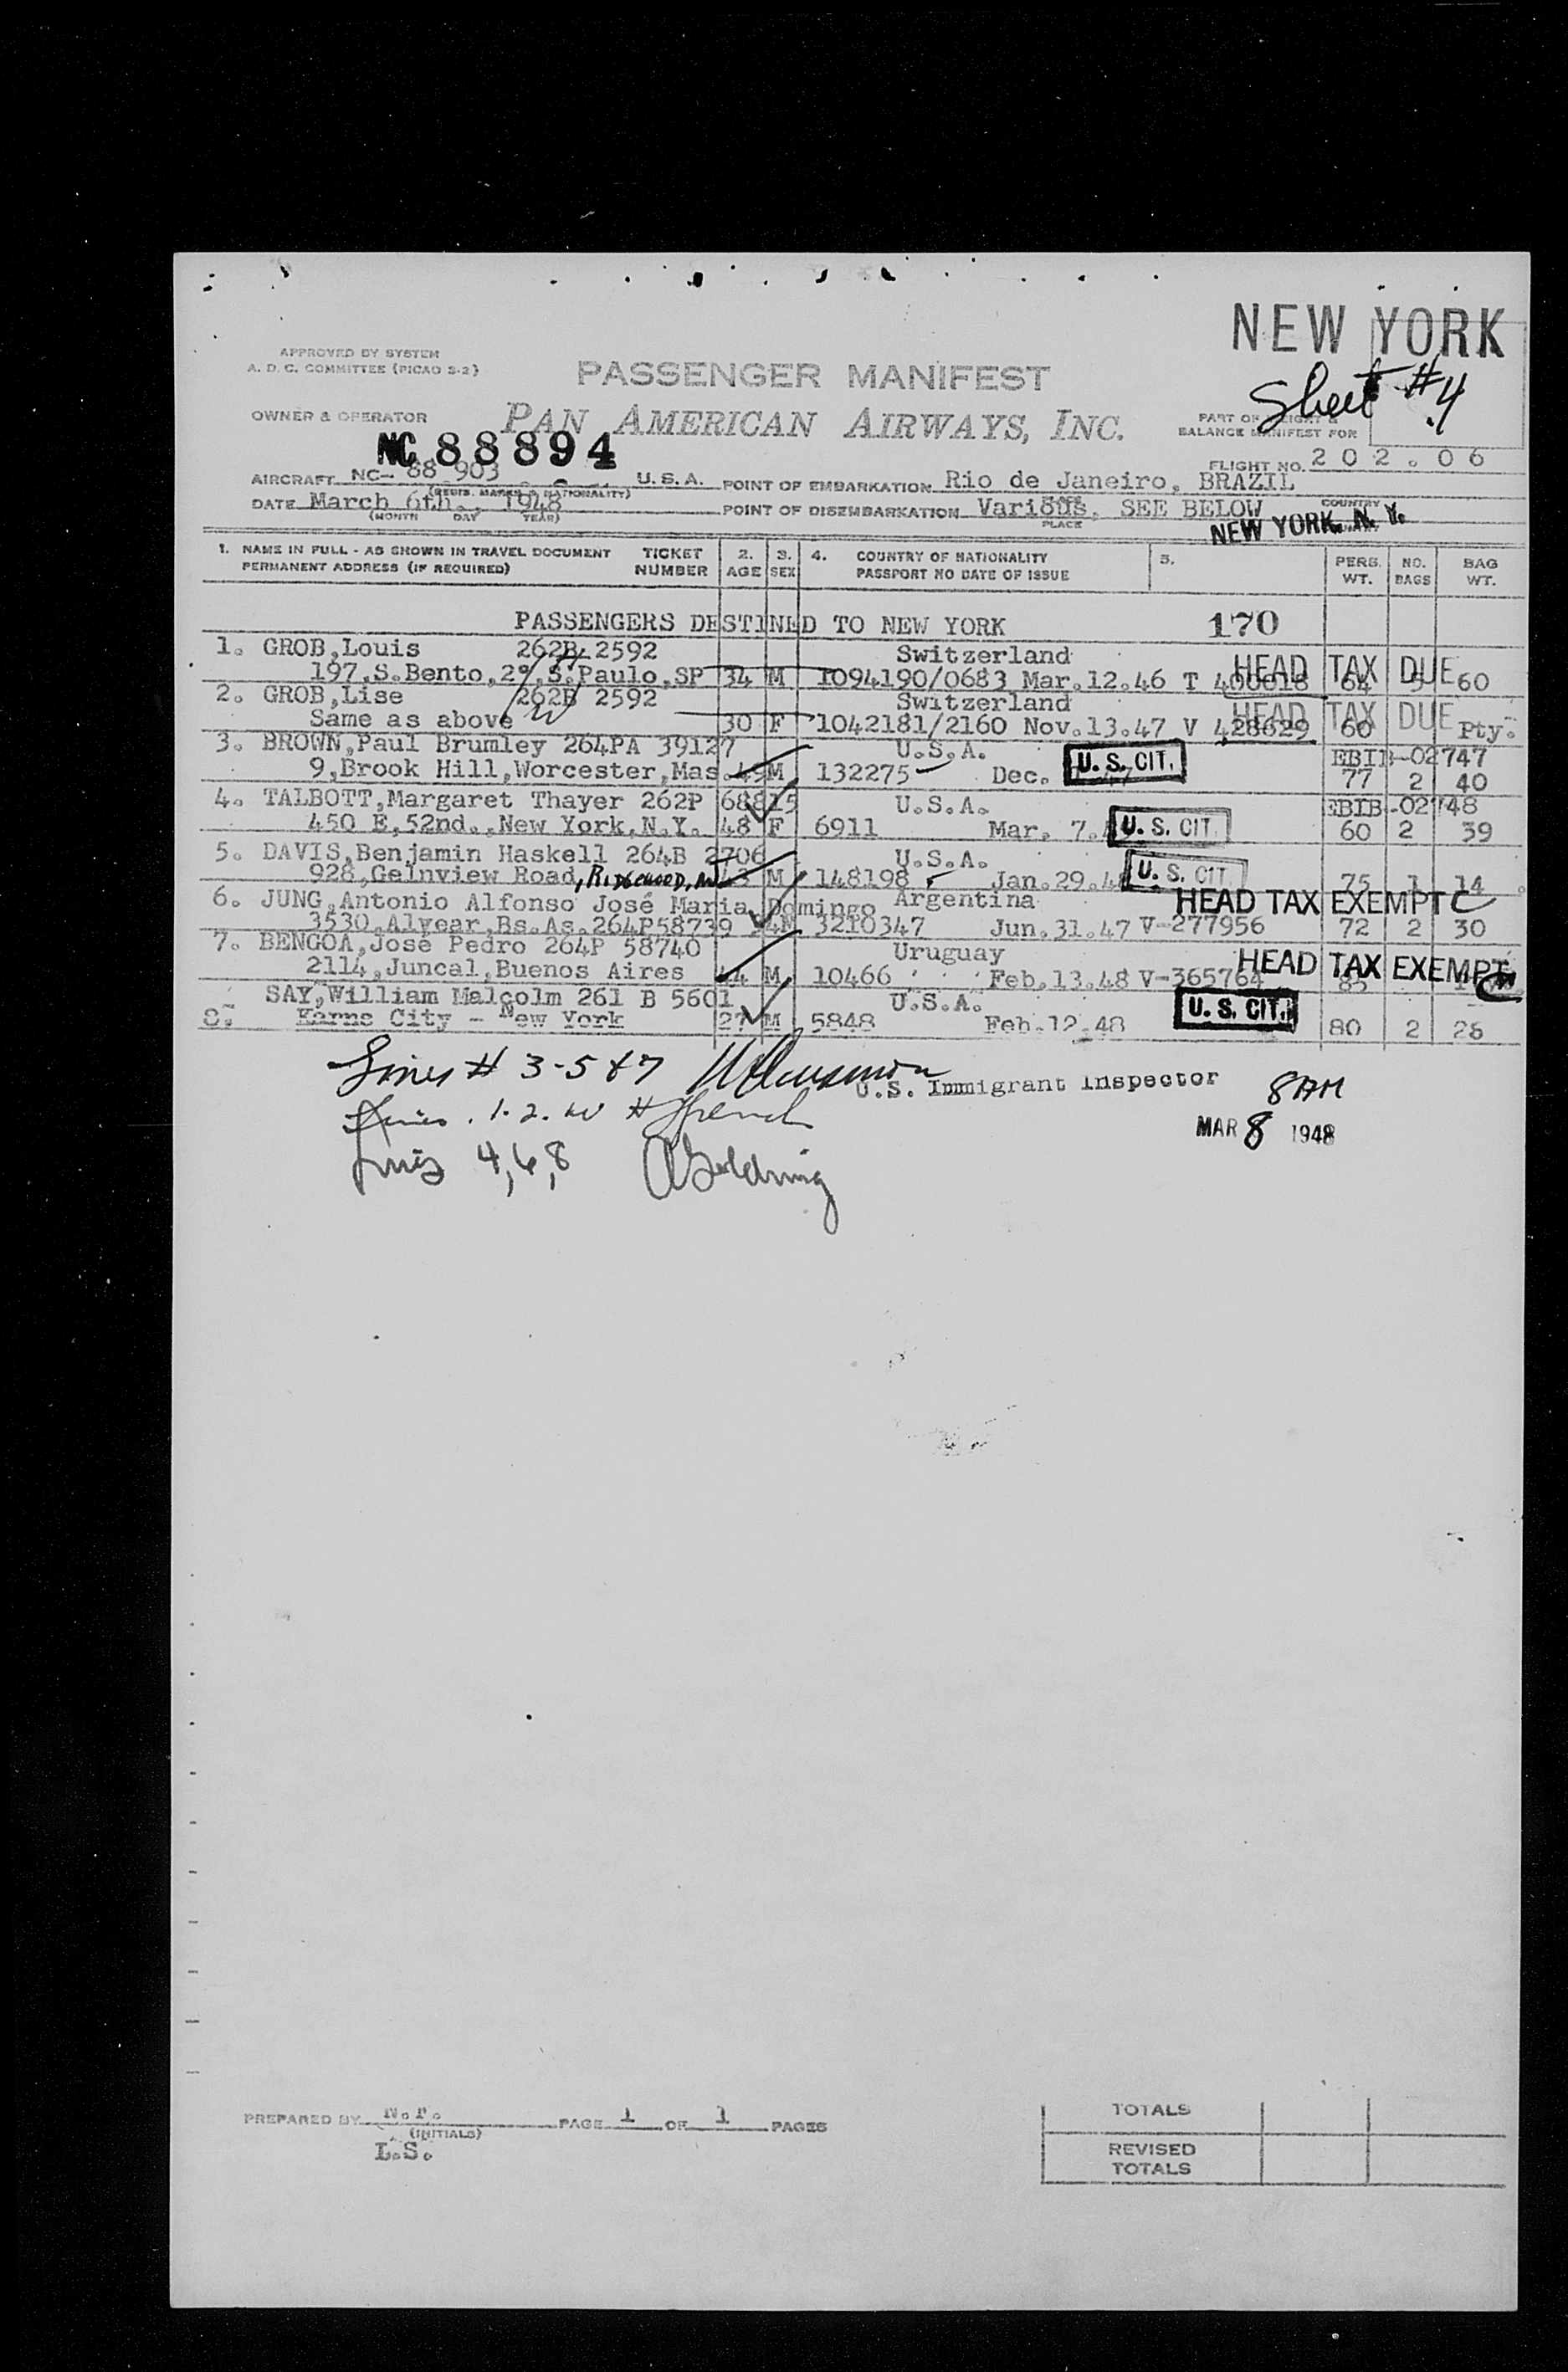 NEW YORK
APPROVED BY SYSTEM
A. D. C. COMMITTEE (PICAO S-2)
PASSENGER MANIFEST
Sheet #4
OWNER & OPERATOR
PAN AMERICAN AIRWAYS, INC.
PART OF WEIGHT &
BALANCE MANIFEST FOR
NC 88894
FLIGHT NO. 202.06
AIRCRAFT NC- 88 903 U.S.A. POINT OF EMBARKATION Rio de Janeiro, BRAZIL
(REGIS. MARKS & NATIONALITY)
DATE March 6th., 1948 POINT OF DISEMBARKATION Various, SEE BELOW
(MONTH DAY YEAR) PLACE COUNTRY
NEW YORK, N. Y.
1. NAME IN FULL - AS SHOWN IN TRAVEL DOCUMENT TICKET 2. 3. 4. COUNTRY OF NATIONALITY 5. PERS. NO. BAG
PERMANENT ADDRESS (IF REQUIRED) NUMBER AGE SEX PASSPORT NO DATE OF ISSUE WT. BAGS WT.
PASSENGERS DESTINED TO NEW YORK 170
1. GROB,Louis 262B 2592 Switzerland HEAD TAX DUE
197,S.Bento,2º,S.Paulo,SP 34 M 1094190/0683 Mar.12.46 T 400018 64 5 60
2. GROB,Lise 262B 2592 Switzerland HEAD TAX DUE
Same as above 30 F 1042181/2160 Nov.13.47 V 428629 60 Pty.
3. BROWN,Paul Brumley 264PA 39127 U.S.A. U. S. CIT. EBIB-02747
9,Brook Hill,Worcester,Mas. 49 M 132275 Dec. 77 2 40
4. TALBOTT,Margaret Thayer 262P 68815 U.S.A. EBIB-02748
450 E,52nd.,New York,N.Y. 48 F 6911 Mar. 7. U. S. CIT. 60 2 39
5. DAVIS,Benjamin Haskell 264B 2706 U.S.A. U. S. CIT
928,Gelnview Road, RIDGEWOOD, 43 M 148198 Jan.29.48 75 1 14
6. JUNG,Antonio Alfonso José Maria Domingo Argentina HEAD TAX EXEMPT C
3530,Alvear,Bs.As.264P58739 M 3210347 Jun.31.47 V-277956 72 2 30
7. BENGOA,José Pedro 264P 58740 Uruguay HEAD TAX EXEMPT
2114,Juncal,Buenos Aires 44 M 10466 Feb.13.48 V-365764 85
SAY,William Malcolm 261 B 5601 U.S.A. U. S. CIT.
8. Karns City - New York 27 M 5848 Feb.12.48 80 2 26
Lines # 3-5 & 7
U.S. Immigrant Inspector 8AM
Lines . 1. 2. French
MAR 8 1948
Lines 4,6,8 A Goldring
PREPARED BY PAGE 1 OF 1 PAGES
(INITIALS)
L.S.
TOTALS
REVISED
TOTALS